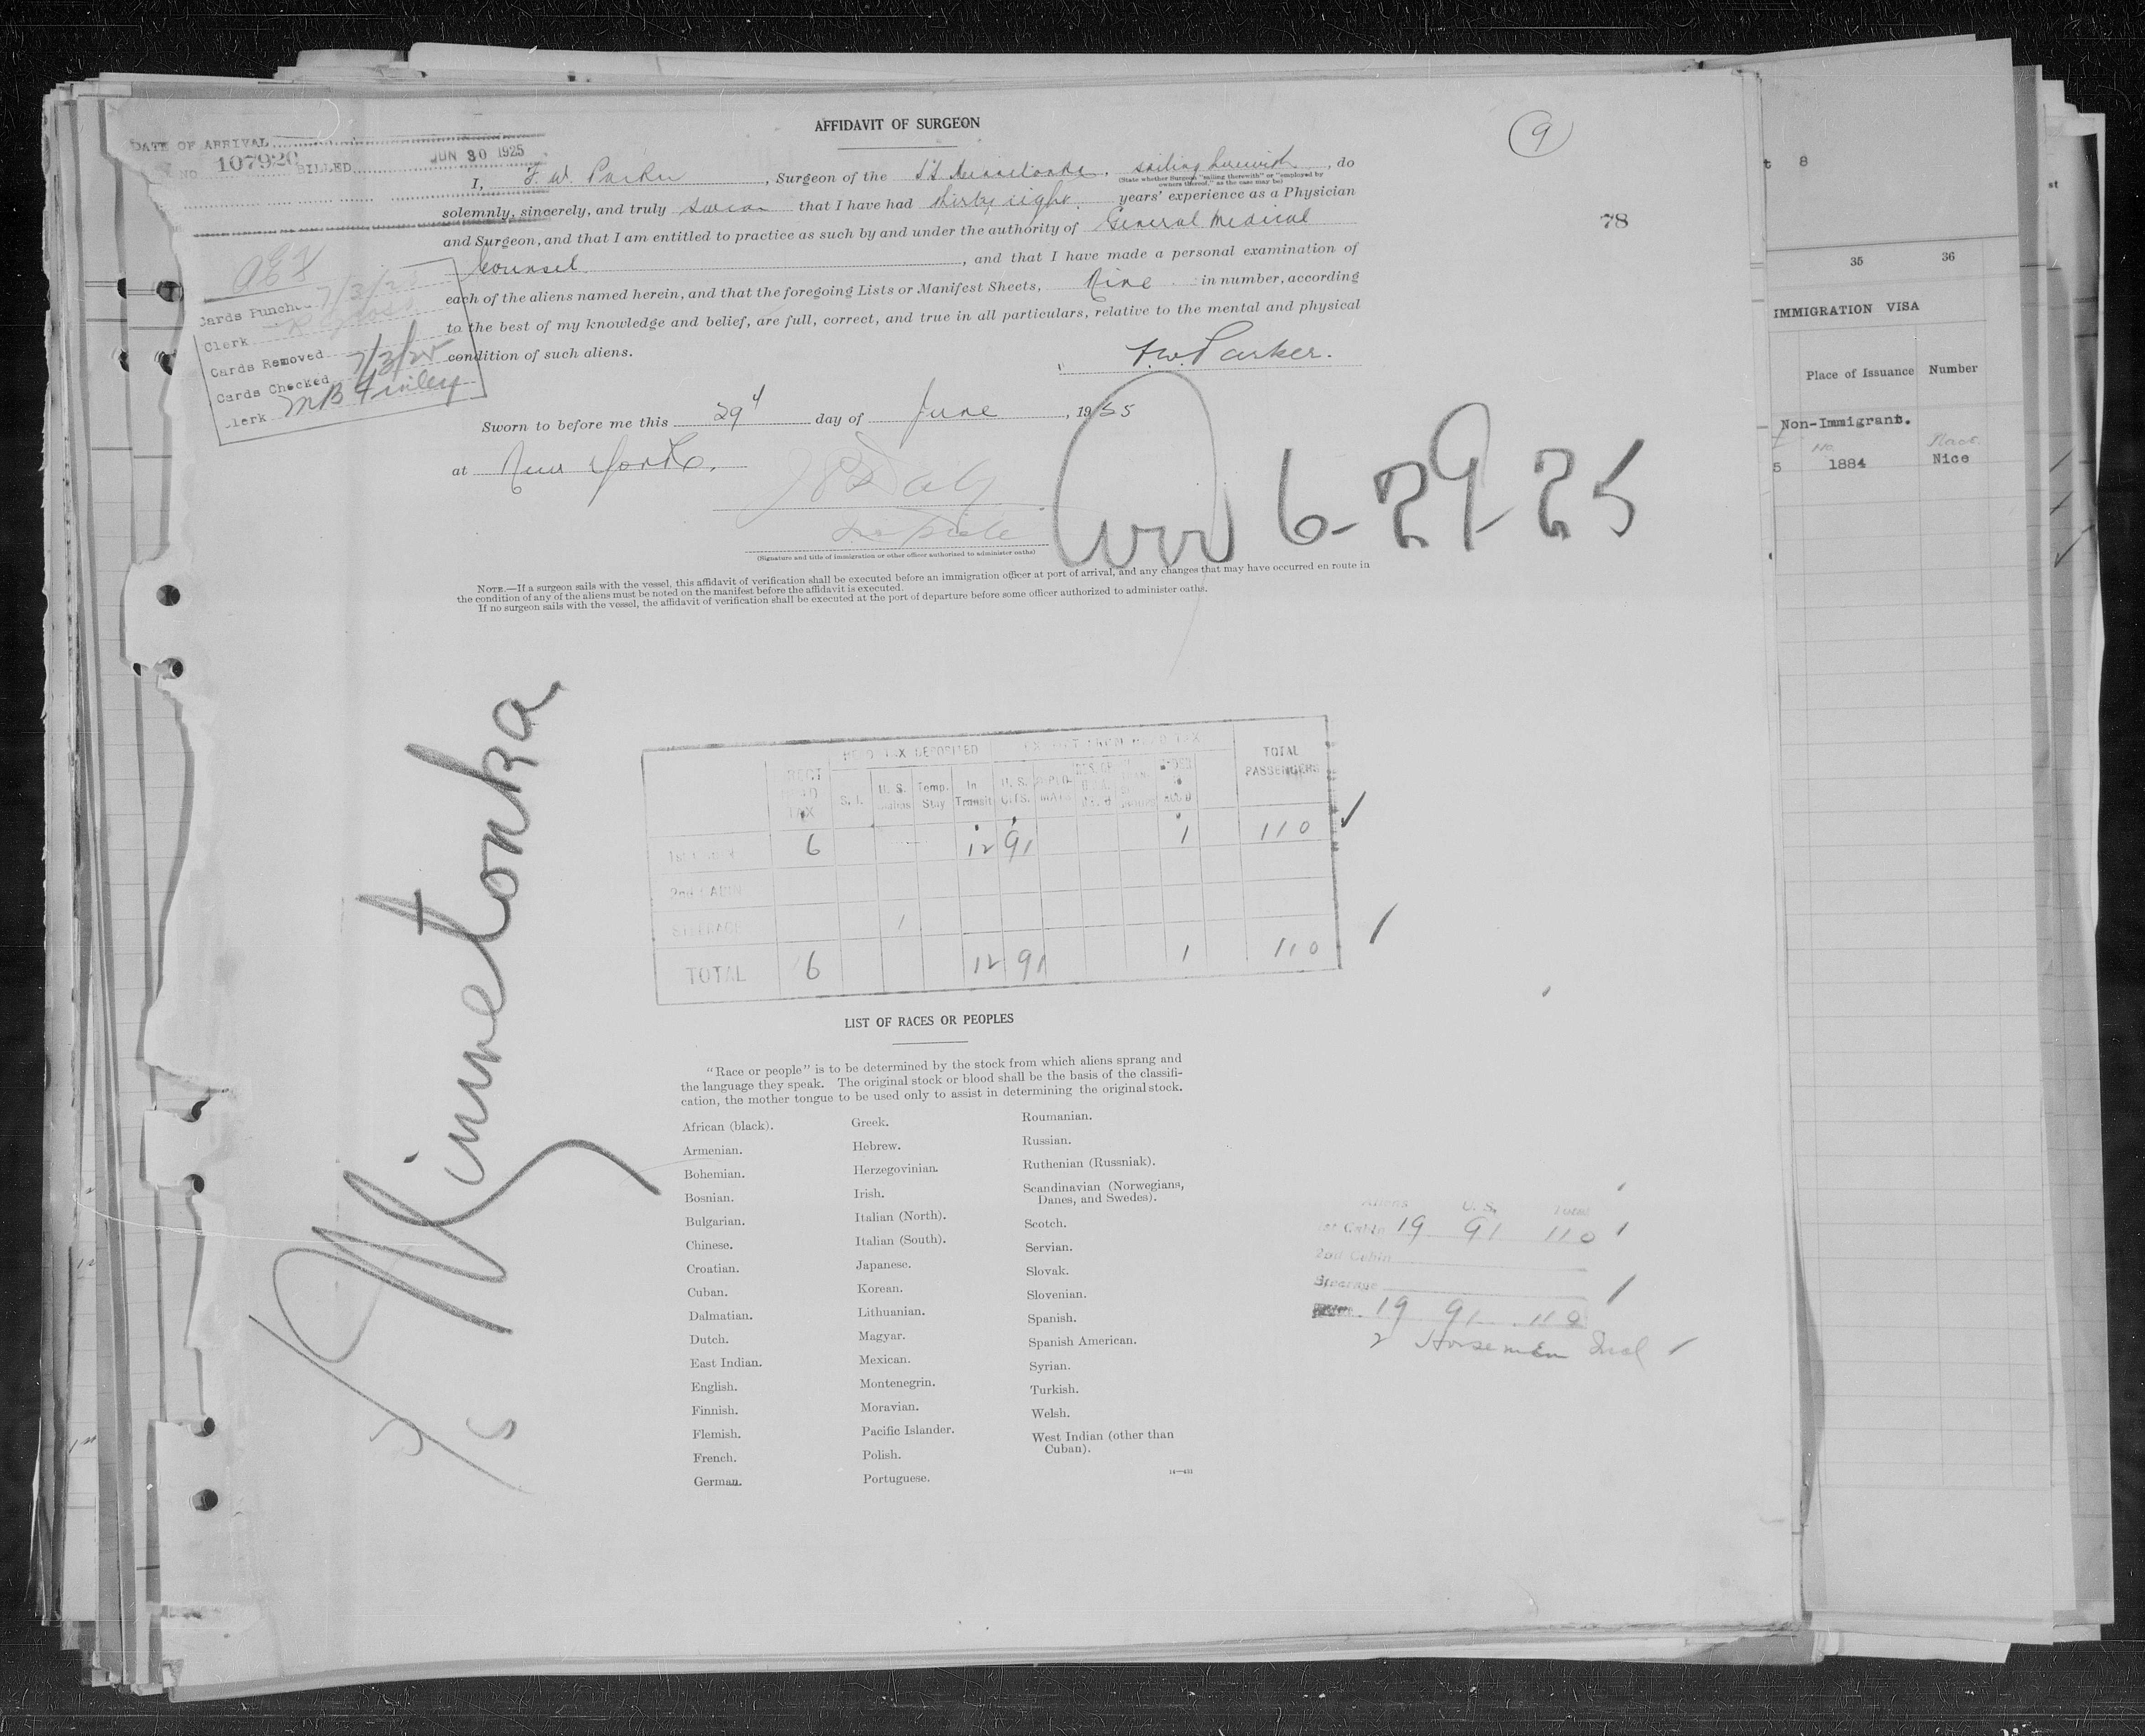 AFFIDAVIT OF SURGEON
9
DATE OF ARRIVAL
NO 107920 BILLED JUN 30 1925
I, F. W. Parker, Surgeon of the SS Minnetonka, sailing therewith, do
(State whether Surgeon "sailing therewith" or "employed by
owners thereof," as the case may be)
solemnly, sincerely, and truly swear that I have had thirty eight years' experience as a Physician
and Surgeon, and that I am entitled to practice as such by and under the authority of General Medical
Counsel, and that I have made a personal examination of
each of the aliens named herein, and that the foregoing Lists or Manifest Sheets, Nine in number, according
to the best of my knowledge and belief, are full, correct, and true in all particulars, relative to the mental and physical
condition of such aliens.
F.W. Parker.
78
Cards Punched 7/3/25
Clerk
Cards Removed
Cards Checked 7/3/25
Clerk MB Finley
Sworn to before me this 29 day of June, 1925
at New York.
Arr 6-29-25
(Signature and title of immigration or other officer authorized to administer oaths)
NOTE.—If a surgeon sails with the vessel, this affidavit of verification shall be executed before an immigration officer at port of arrival, and any changes that may have occurred en route in
the condition of any of the aliens must be noted on the manifest before the affidavit is executed.
If no surgeon sails with the vessel, the affidavit of verification shall be executed at the port of departure before some officer authorized to administer oaths.
Minnetonka
HEAD TAX DEPOSITED EXEMPT FROM HEAD TAX TOTAL
PASSENGERS
HEAD TAX S. I. U. S. Temp. Stay In Transit U. S. CITS.
1st CABIN 6 12 91 1 110
2nd CABIN
STEERAGE
TOTAL 6 12 91 1 110
LIST OF RACES OR PEOPLES
"Race or people" is to be determined by the stock from which aliens sprang and
the language they speak. The original stock or blood shall be the basis of the classifi-
cation, the mother tongue to be used only to assist in determining the original stock.
African (black).
Armenian.
Bohemian.
Bosnian.
Bulgarian.
Chinese.
Croatian.
Cuban.
Dalmatian.
Dutch.
East Indian.
English.
Finnish.
Flemish.
French.
German.
Greek.
Hebrew.
Herzegovinian.
Irish.
Italian (North).
Italian (South).
Japanese.
Korean.
Lithuanian.
Magyar.
Mexican.
Montenegrin.
Moravian.
Pacific Islander.
Polish.
Portuguese.
Roumanian.
Russian.
Ruthenian (Russniak).
Scandinavian (Norwegians,
Danes, and Swedes).
Scotch.
Servian.
Slovak.
Slovenian.
Spanish.
Spanish American.
Syrian.
Turkish.
Welsh.
West Indian (other than
Cuban).
14—431
Aliens U. S. Total
1st Cabin 19 91 110
2nd Cabin
Steerage
19 91 110
2 Horsemen Incl
8
35 36
IMMIGRATION VISA
Place of Issuance Number
Non-Immigrant.
No. Place.
5 1884 Nice
st